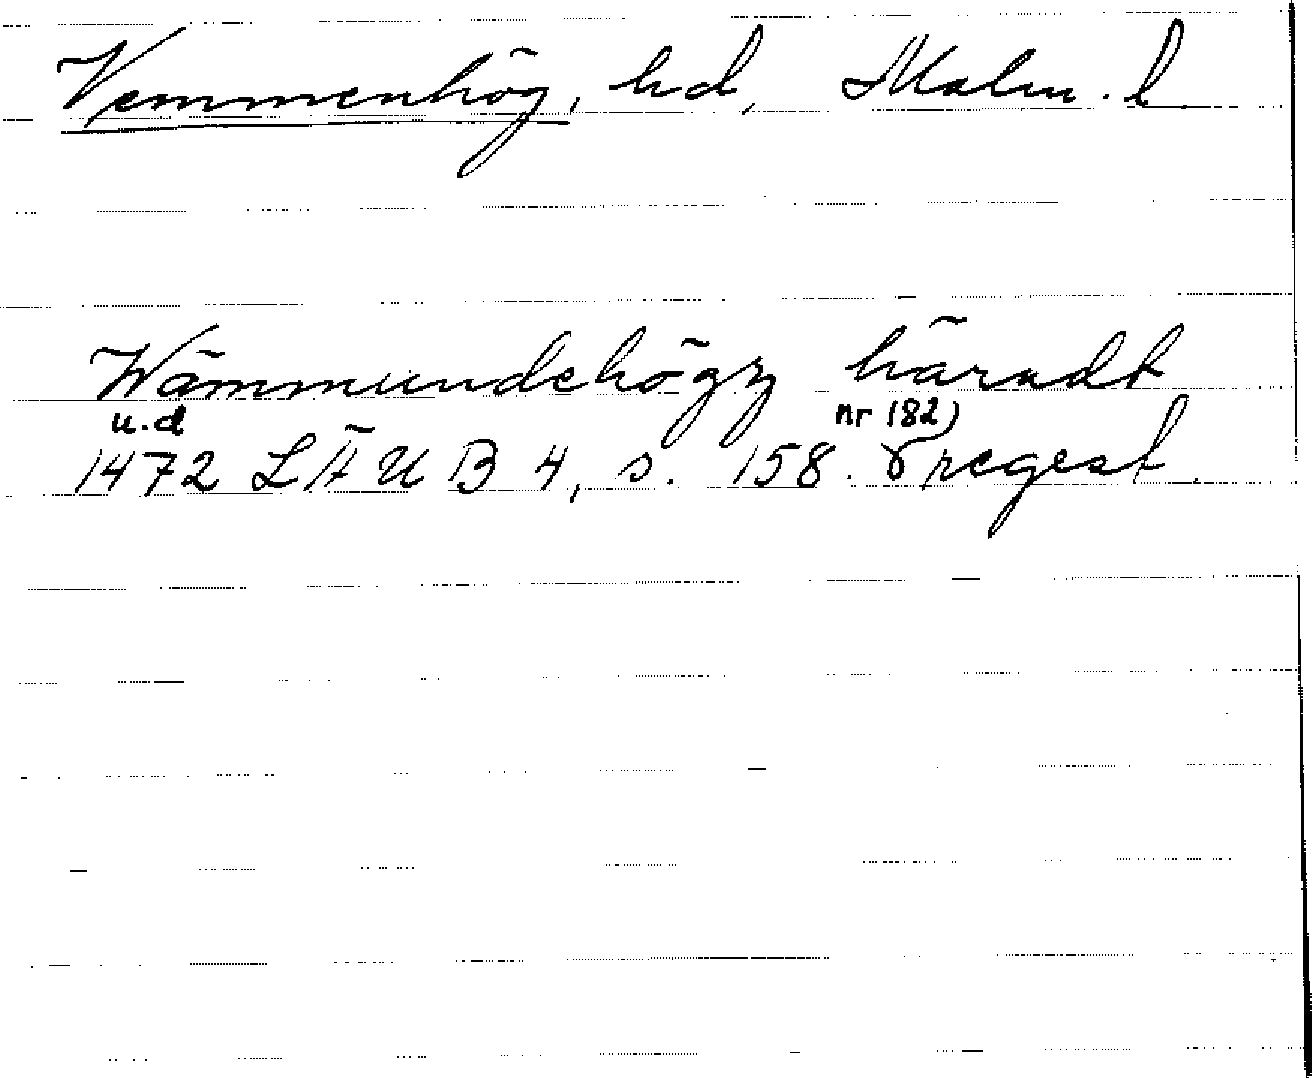 Vemmenhög, hd, Malm. l
Wämmundehögz häradt
u.d nr 182)
1472 LÄUB 4, s. 158. regest.